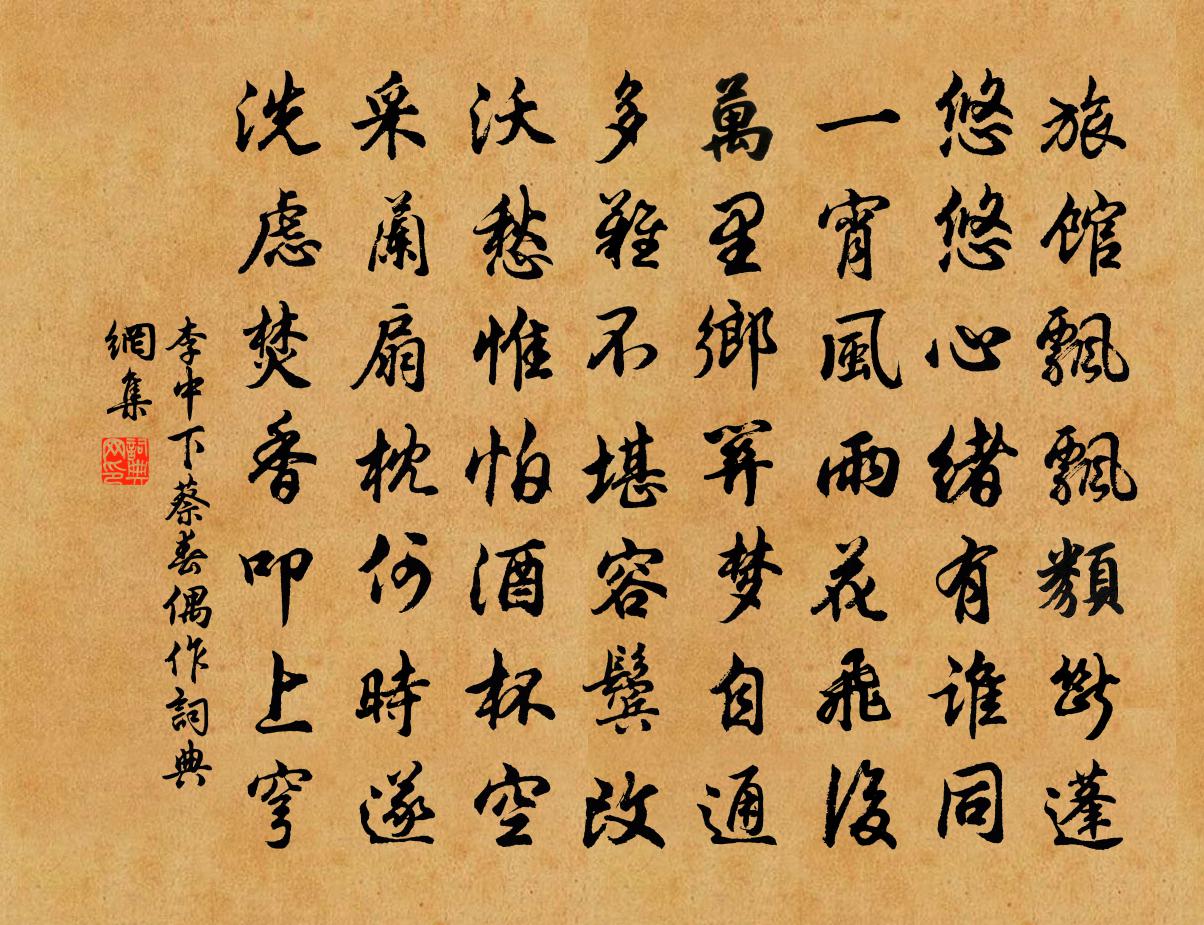 旅館飄飄類斷蓬
悠悠心緒有誰同
一宵風雨花飛後
萬里鄉關夢自通
多難不堪容鬢改
沃愁惟怕酒杯空
采蘭扇枕何時遂
洗慮焚香叩上穹
李中下蔡春偶作詞典
網集
詞典
网印